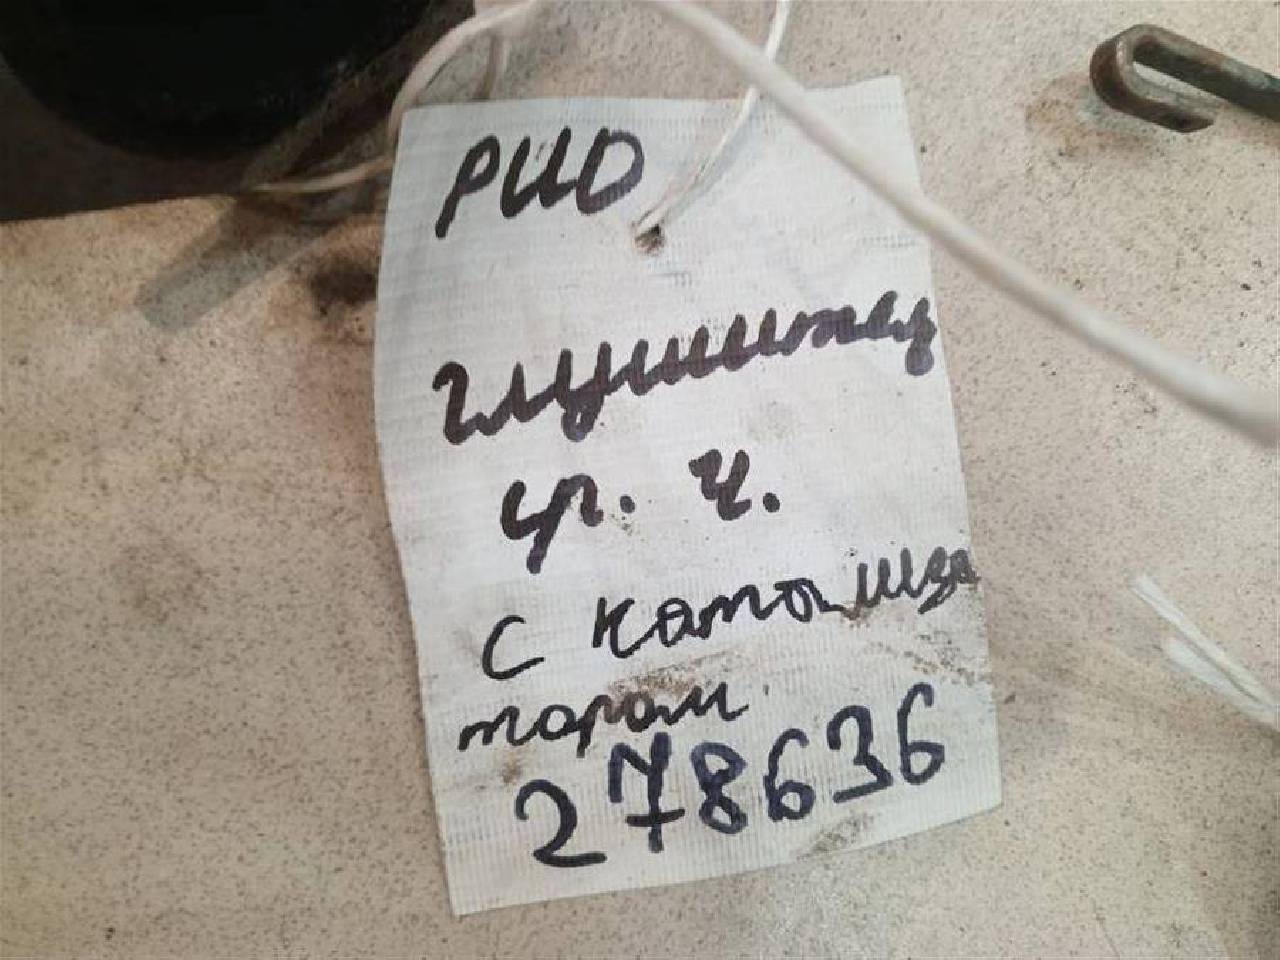 РИО
глушител
ср. ч.
с католиза
тором
278636